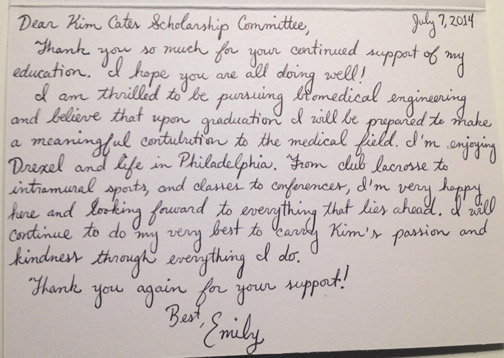 Dear Kim Cates Scholarship Committee,
July 7, 2014
Thank you so much for your continued support of my
education. I hope you are all doing well!
I am thrilled to be pursuing biomedical engineering
and believe that upon graduation I will be prepared to make
a meaningful contubution to the medical field. I'm enjoying
Drexel and life in Philadelphia. From club lacrosse to
intramural sports, and classes to conferences, I'm very happy
here and looking forward to everything that lies ahead. I will
continue to do my very best to carry Kim's passion and
kindness through everything I do.
Thank you again for your support!
Best,
Emily